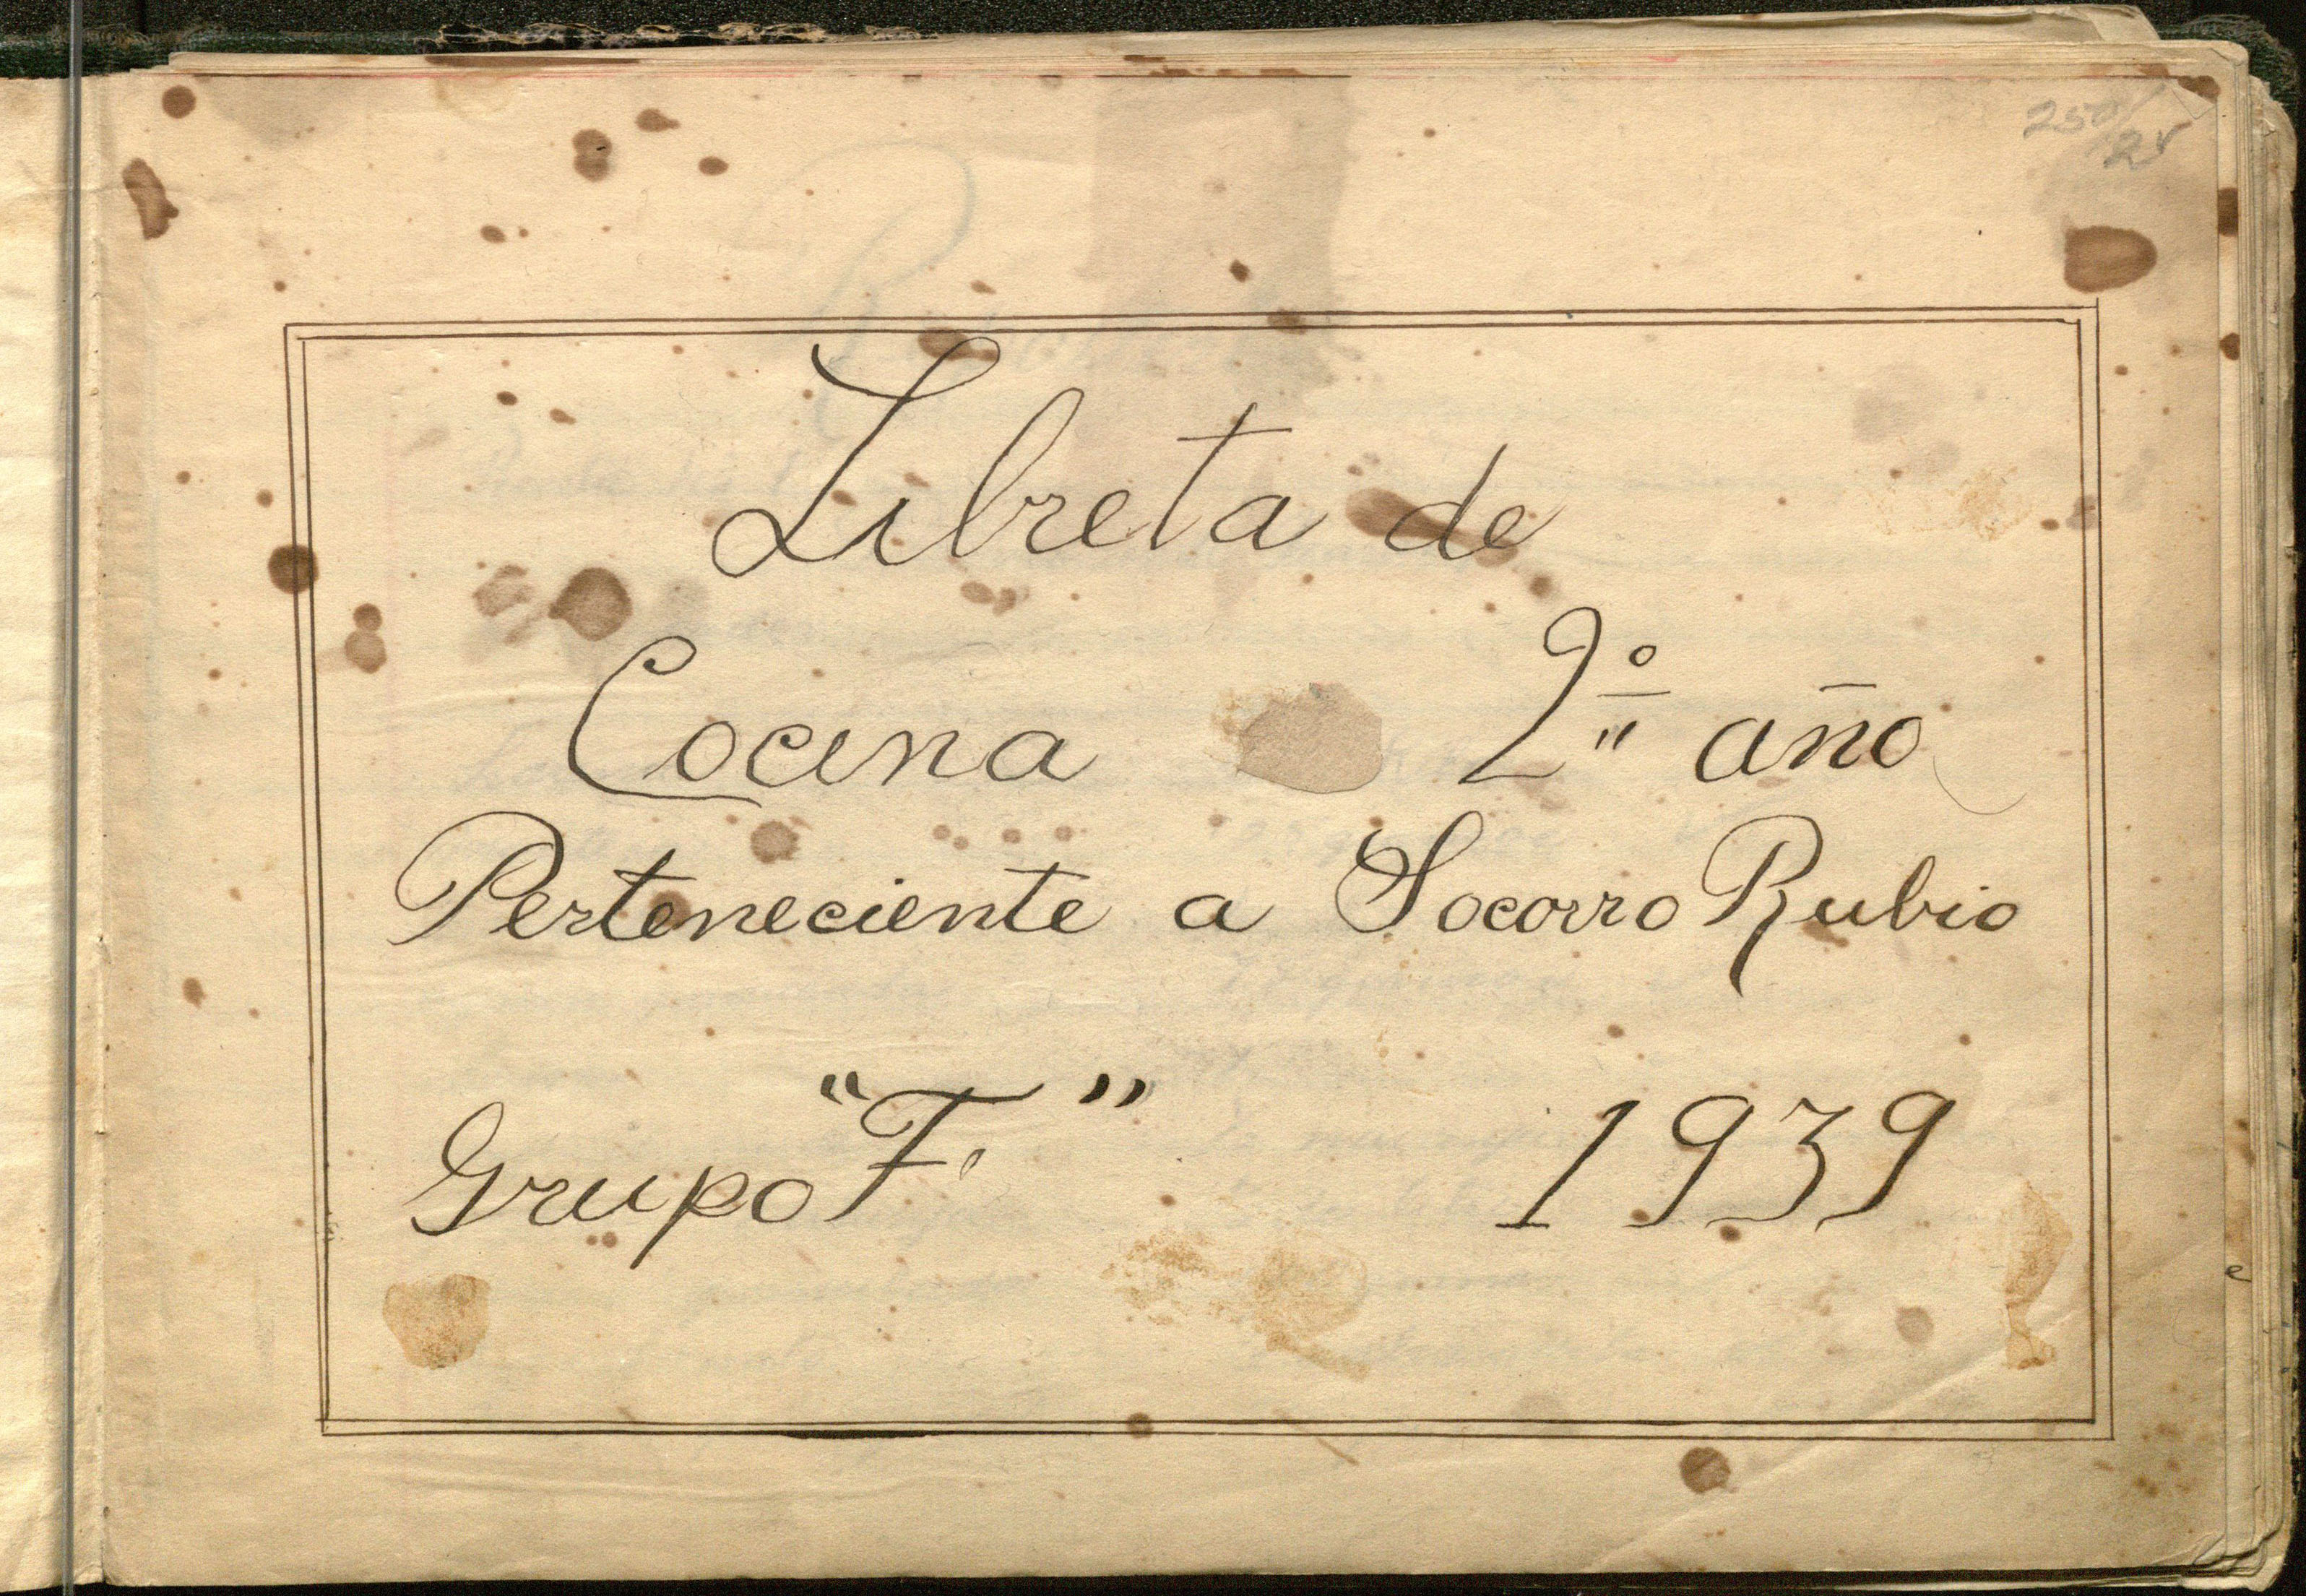 Libreta de
Cocina 2º año
Perteneciente a Socorro Rubio
Grupo "F" 1939